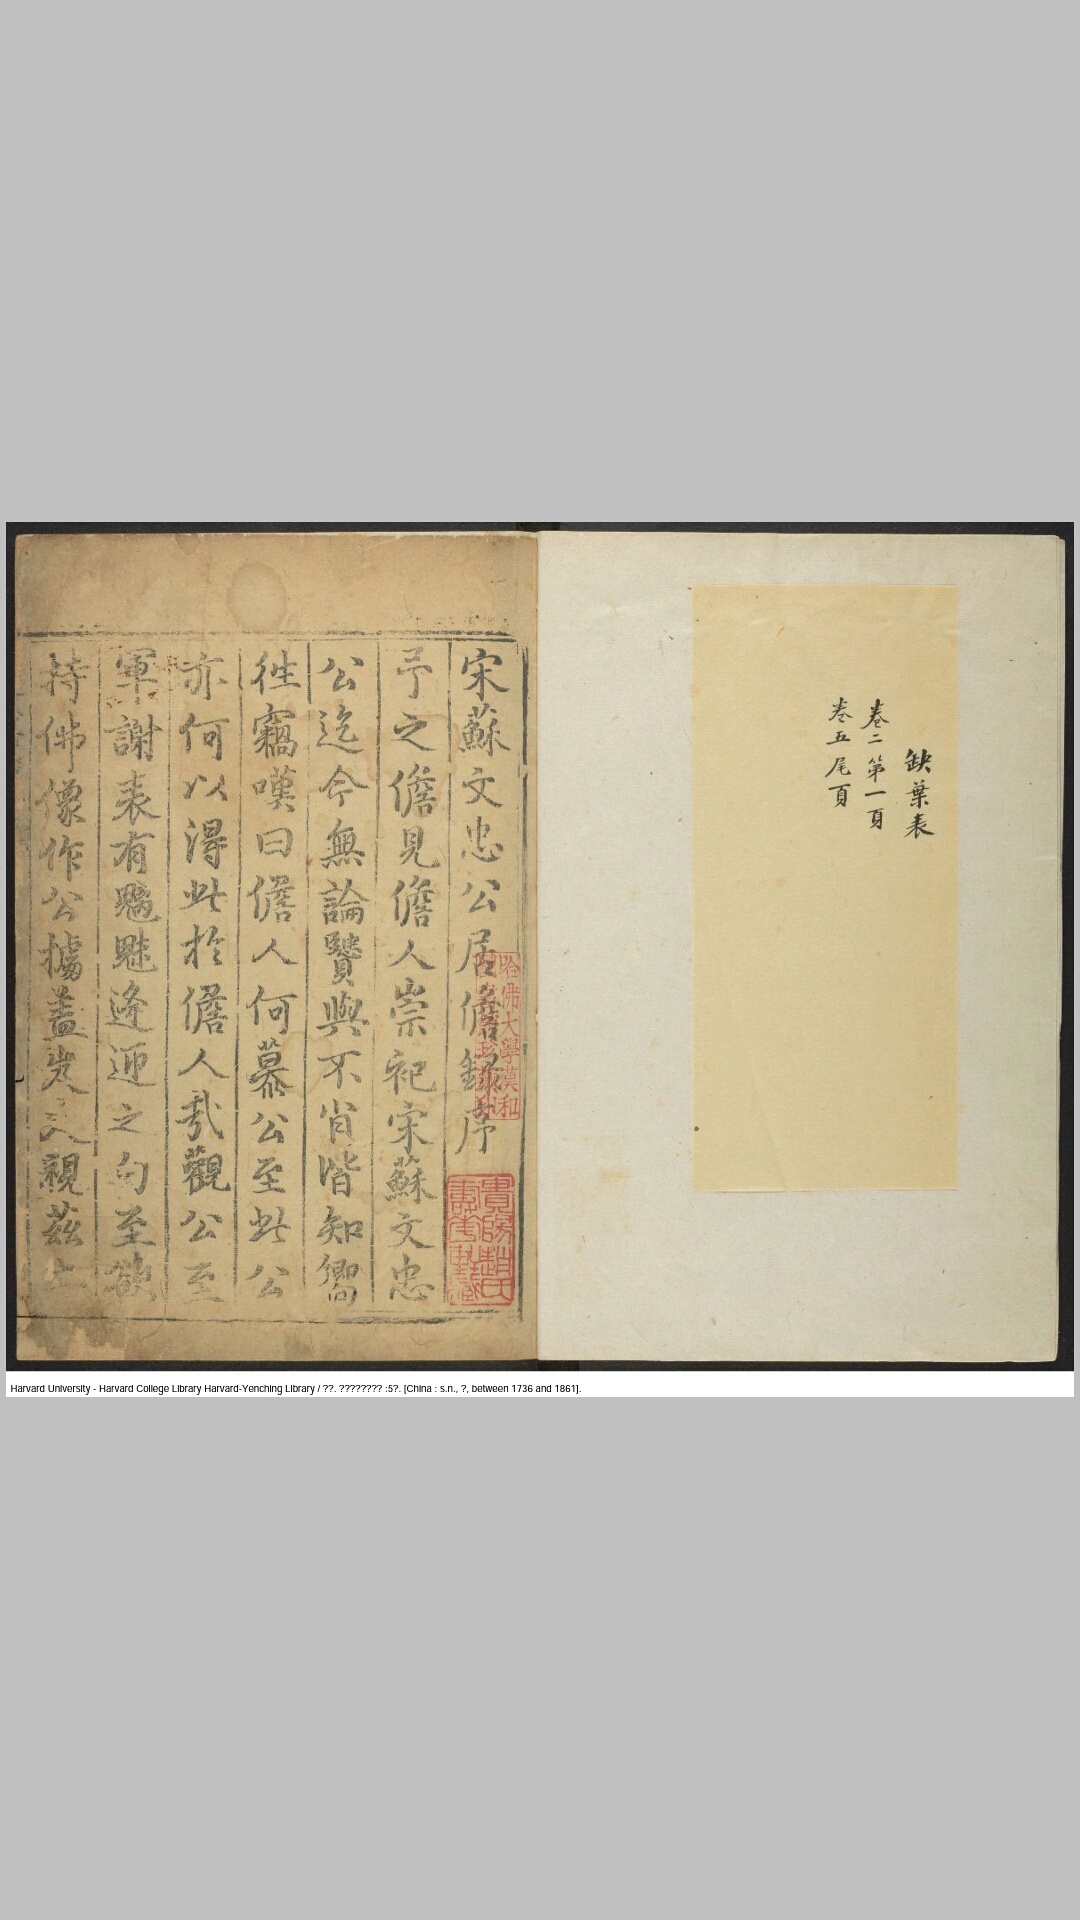 缺葉表
卷二第一頁
卷五尾頁
宋蘇文忠公居儋錄序
予之儋見儋人崇祀宋蘇文忠
公迄今無論賢與不肖皆知嚮
徃竊嘆曰儋人何慕公至此公
亦何以得此於儋人哉觀公至
軍謝表有魑魅逢迎之句至欲
持佛像作公據蓋
親茲土
哈佛大學漢和
貴陽趙氏
壽華軒藏
Harvard University - Harvard College Library Harvard-Yenching Library / ??. ???????? :5?. [China : s.n., ?, between 1736 and 1861].